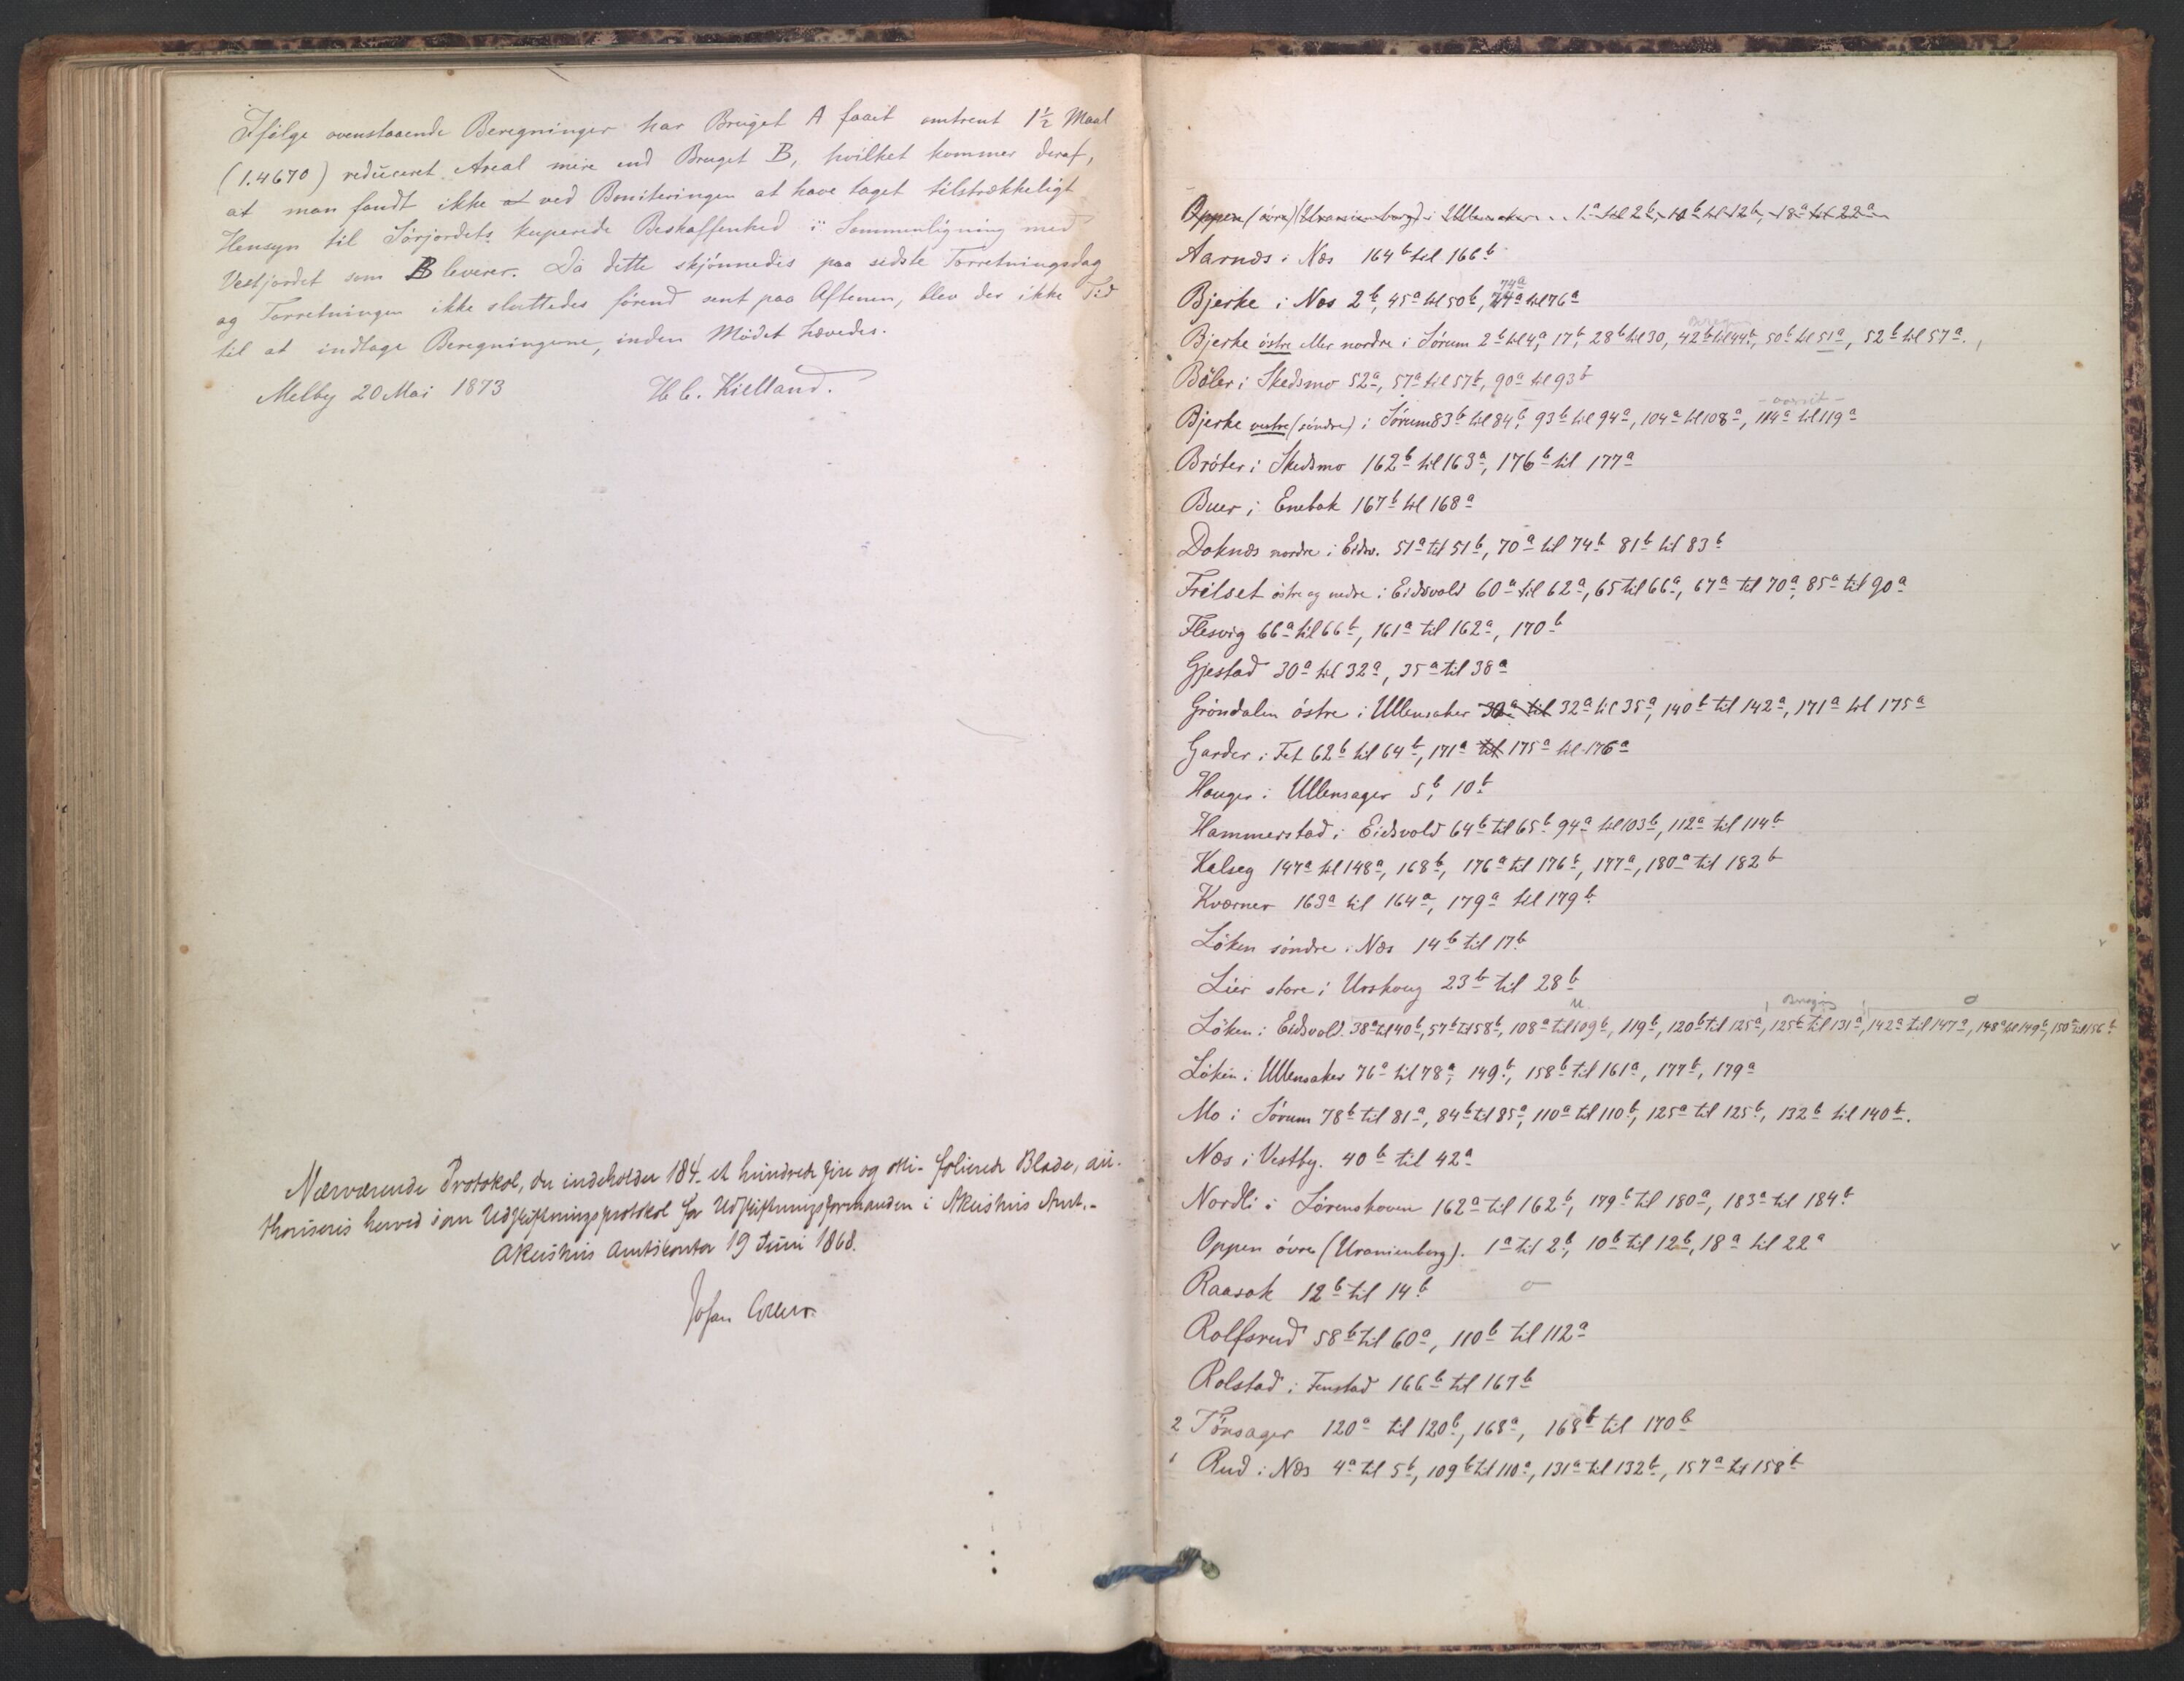 Ifølge ovenstaaende Beregninger har Bruget A faaet omtrent 1½ Maal
(1.4670) reduceret Areal mere end Bruget B, hvilket kommer deraf,
at man fandt ikke at ved Boniteringen at have taget tilstrækkeligt
Hensyn til Sørjordets kuperede Beskaffenhed i Sammenligning med
Vestjordet som B leverer. Da dette skjønnedes paa sidste Forretningsdag
og Forretningen ikke sluttedes førend sent paa Aftenen, blev der ikke Tid
til at indtage Beregningerne, inden Mødet hævedes.
Melby 20 Mai 1873 H. C. Kielland.
Nærværende Protokol, der indeholder 184 - et hundrede fire og otti - folierede Blade, au-
thoriseres herved som Udskiftningsprotokol for Udskiftningsformanden i Akershus Amt.-
Akershus Amtskontor 19 Juni 1868.
Johan Collett
Oppen (øvre) (Uranienborg) i Ullensaker .. 1a til 2b, 10b til 12b, 18a til 22a
Aarnæs i Næs 164b til 166b
Bjerke i Næs 2b, 45a til 50b, 74a til 76a
Bjerke østre eller nordre i Sørum 2b til 4a, 17b, 28b til 30, 42b til 44b, 50b til 51a, 52b til 57a.
Bøler i Skedsmo 52a, 57a til 57b, 90a til 93b
Bjerke vestre (søndre) i Sørum 83b til 84b, 93b til 94a, 104a til 108a, 114a til 119a
Brøter i Skedsmo 162b til 163a, 176b til 177a
Buer i Enebak 167b til 168a
Doknæs nordre i Eidsv. 51a til 51b, 70a til 74b 81b til 83b
Frilset østre og nedre i Eidsvold 60a til 62a, 65 til 66a, 67a til 70a, 85a til 90a
Flesvig 66a til 66b, 161a til 162a, 170b
Gjestad 30a til 32a, 35a til 38a
Grøndalen østre i Ullensaker 32a til 32a til 35a, 140b til 142a, 171a til 175a
Garder i Fet 62b til 64b, 171a til 175a til 176a
Hauger i Ullensager 5b, 10b
Hammerstad i Eidsvold 64b til 65b 94a til 103b, 112a til 114b
Kalseg 147a til 148a, 168b, 176a til 176b, 177a, 180a til 182b
Kværner 163a til 164a, 179a til 179b
Løken søndre i Næs 14b til 17b
Lier store i Urskoug 23b til 28b
Løken i Eidsvold. 38a til 40b, 57b til 58b, 108a til 109b, 119b, 120b til 125a, 125b til 131a, 142a til 147a, 148a til 149b, 150a til 156b
Løken i Ullensaker 76a til 78a, 149b, 158b til 161a, 177b, 179a
Mo i Sørum 78b til 81a, 84b til 85a, 110a til 110b, 125a til 125b, 132b til 140b.
Næs i Vestby. 40b til 42a
Nordli i Lørenskoven 162a til 162b, 179b til 180a, 183a til 184b
Oppen øvre (Uranienborg). 1a til 2b, 10b til 12b, 18a til 22a
Raasok 12b til 14b
Rolfsrud 58b til 60a, 110b til 112a
Rolstad i Fenstad 166b til 167b
2 Tønsager 120a til 120b, 168a, 168b til 170b
1 Rud i Næs 4a til 5b, 109b til 110a, 131a til 132b, 157a til 158b